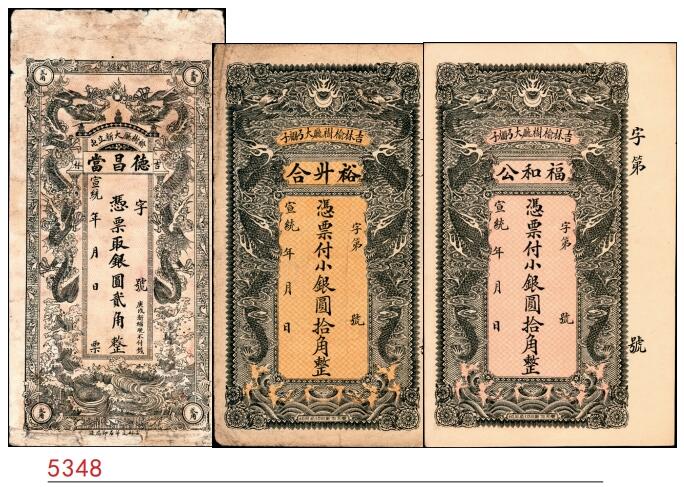 德昌當
字 號
憑票取銀圓貳角整
宣統 年 月 日
票
吉林榆樹廳大弓棚子
裕升合
字第 號
憑票付小銀圓拾角整
宣統 年 月 日
吉林榆樹廳大弓棚子
福和公
字第 號
憑票付小銀圓拾角整
宣統 年 月 日
字第 號
5348